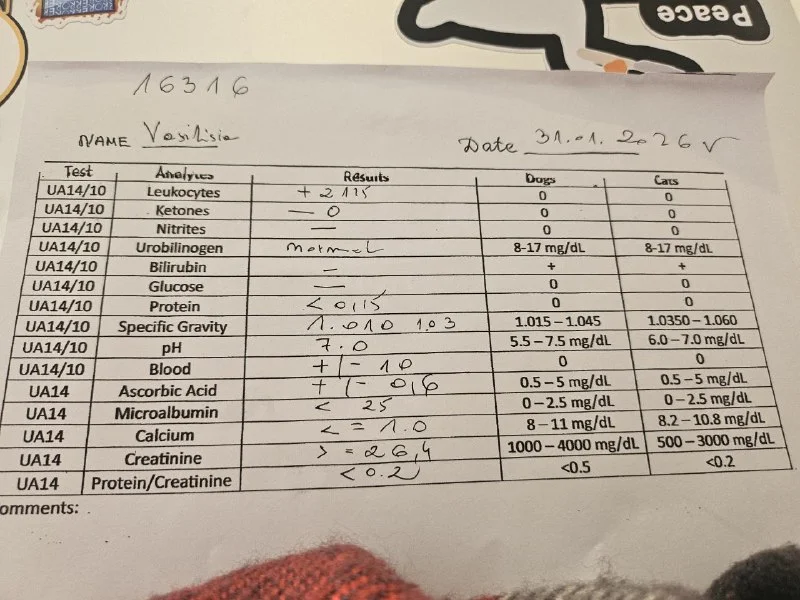 Peace
16316
NAME Vasilisia Date 31.01.2026 √
Test Analytes Results Dogs Cats
UA14/10 Leukocytes + 2 125 0 0
UA14/10 Ketones — 0 0 0
UA14/10 Nitrites — 0 0
UA14/10 Urobilinogen normal 8-17 mg/dL 8-17 mg/dL
UA14/10 Bilirubin — + +
UA14/10 Glucose — 0 0
UA14/10 Protein < 0,15 0 0
UA14/10 Specific Gravity 1.010 1.03 1.015 – 1.045 1.0350 – 1.060
UA14/10 pH 7.0 5.5 – 7.5 mg/dL 6.0 – 7.0 mg/dL
UA14/10 Blood +/- 10 0 0
UA14 Ascorbic Acid +/- 0,6 0.5 – 5 mg/dL 0.5 – 5 mg/dL
UA14 Microalbumin < 25 0 – 2.5 mg/dL 0 – 2.5 mg/dL
UA14 Calcium < = 1.0 8 – 11 mg/dL 8.2 – 10.8 mg/dL
UA14 Creatinine > = 26,4 1000 – 4000 mg/dL 500 – 3000 mg/dL
UA14 Protein/Creatinine < 0.2 <0.5 <0.2
omments: